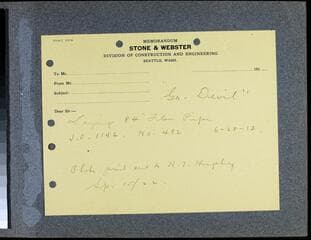 MEMORANDUM
STONE & WEBSTER
DIVISION OF CONSTRUCTION AND ENGINEERING
SEATTLE, WASH.
To Mr.
191
From Mr.
Subject:
Dear Sir:
Laying 84" Flow Pipe
J.O. 1182 No. 482 6-20-12
Photo print sent to H. J. Humphrey
Apr 15/22